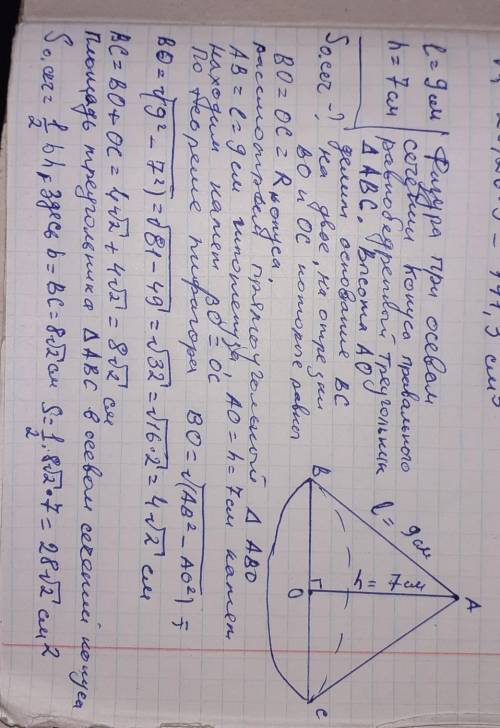 l = 9 см
h = 7 см
Sо.сеч - ?
Фигура при осевом
сечении конуса правильного
равнобедренный треугольник
Δ ABC. Высота AO
делит основание BC
на двое, на отрезки
BO и OC которые равны
BO = OC = R конуса,
рассмотрим прямоугольный Δ ABO
AB = l = 9 см гипотенуза, AO = h = 7 см катет
находим катет BO = OC
По теореме пифагора BO = √(AB² − AO²) =
BO = √(9² − 7²) = √81 − 49 = √32 = √16·2 = 4√2 см
BC = BO + OC = 4√2 + 4√2 = 8√2 см
Площадь треугольника Δ ABC в осевом сечении конуса
Sо.сеч = 1/2 bh, здесь b = BC = 8√2 см S = 1/2 · 8√2 · 7 = 28√2 см2
A
B
C
O
l = 9 см
h = 7 см